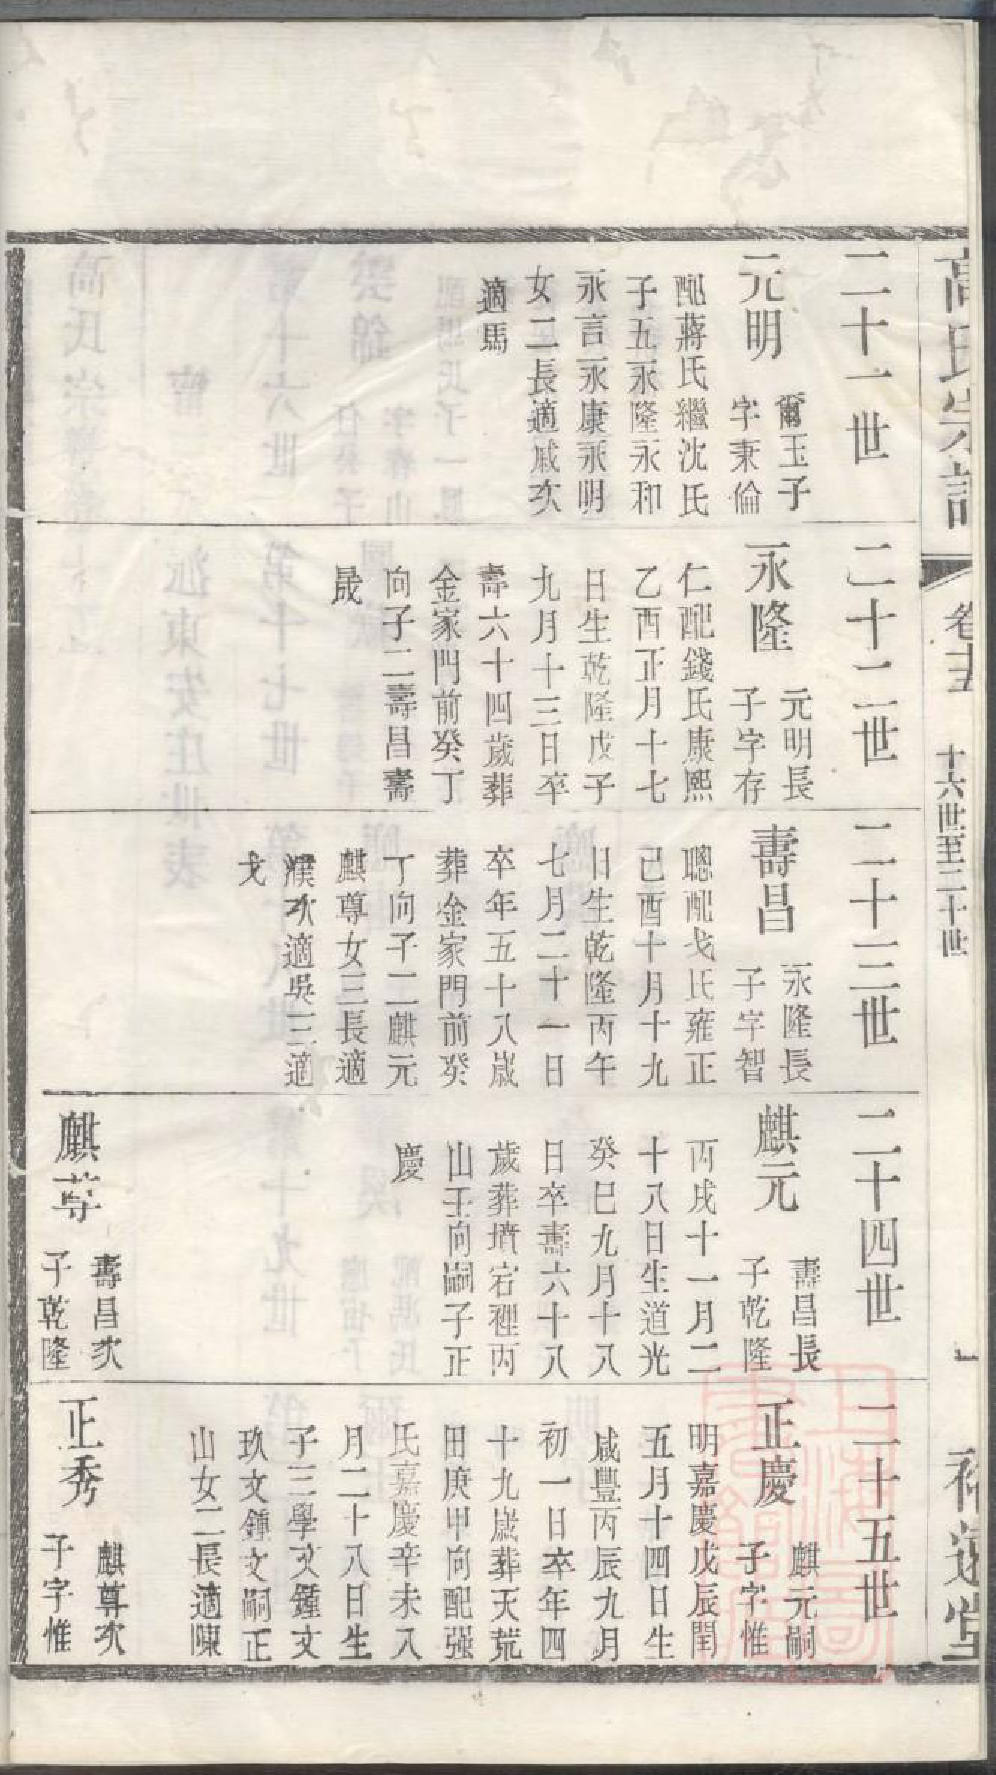 高氏宗譜
卷十五
十六世至二十世
一
二十一世
元明
爾玉子
字秉倫
配蔣氏繼沈氏
子五永隆永和
永言永康永明
女二長適戚次
適馬
二十二世
永隆
元明長
子字存
仁配錢氏康熙
乙酉正月十七
日生乾隆戊子
九月十三日卒
壽六十四歲葬
金家門前癸丁
向子二壽昌壽
晟
二十三世
壽昌
永隆長
子字智
聰配戈氏雍正
己酉十月十九
日生乾隆丙午
七月二十一日
卒年五十八歲
葬金家門前癸
丁向子二麒元
麒尊女三長適
濮次適吳三適
戈
二十四世
麒元
壽昌長
子乾隆
丙戌十一月二
十八日生道光
癸巳九月十八
日卒壽六十八
歲葬墳宕裡丙
山壬向嗣子正
慶
麒尊
壽昌次
子乾隆
二十五世
正慶
麒元嗣
子字惟
明嘉慶戊辰閏
五月十四日生
咸豐丙辰九月
初一日卒年四
十九歲葬天荒
田庚甲向配强
氏嘉慶辛未八
月二十八日生
子三學文鍾文
玖文鍾文嗣正
山女二長適陳
正秀
麒尊次
子字惟